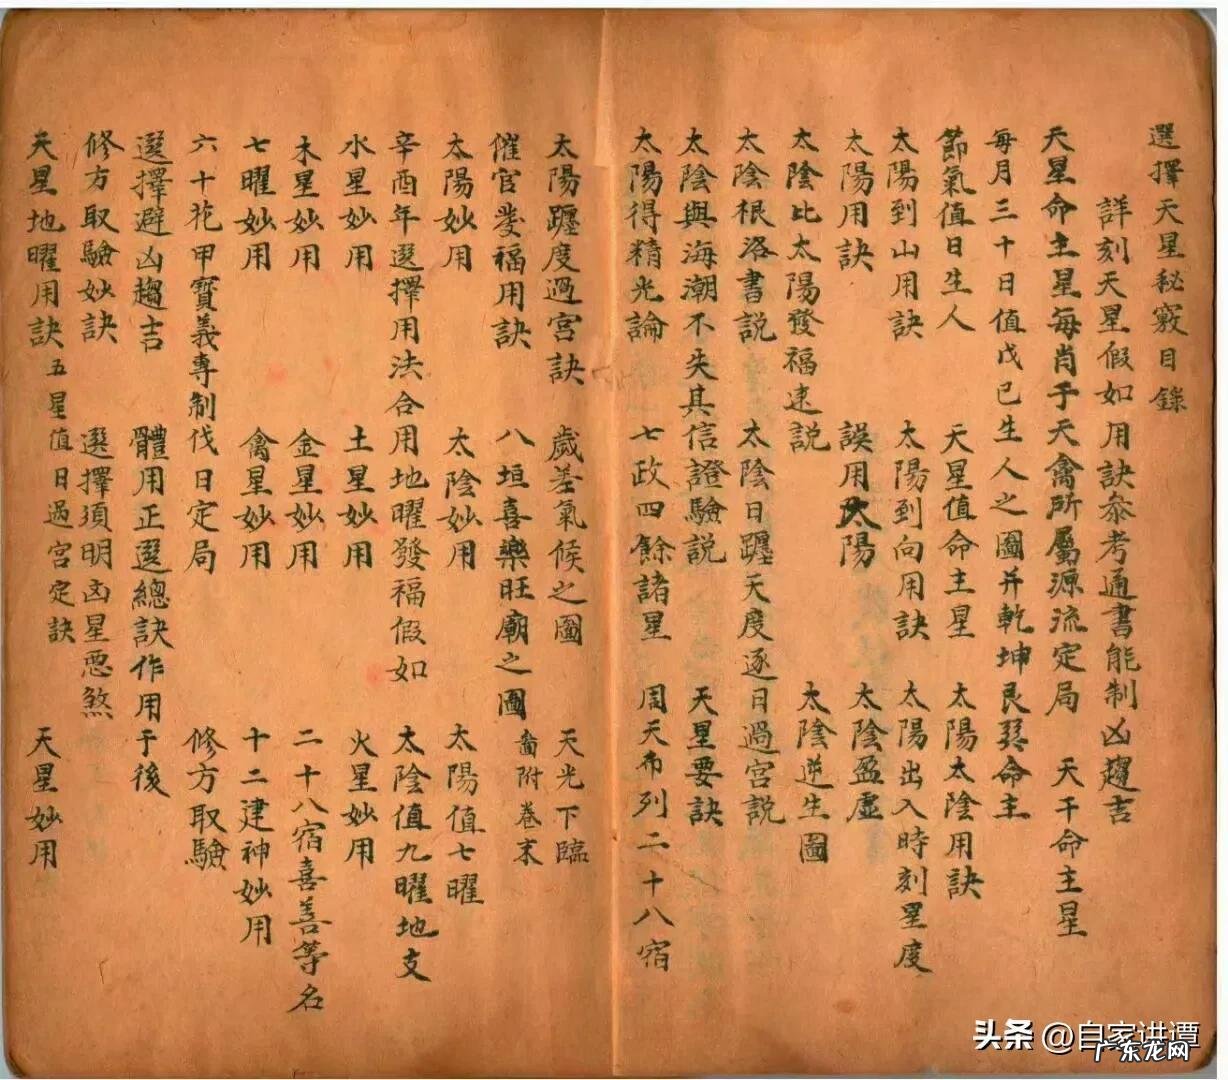 選擇天星秘竅目錄
詳刻天星假如 用訣叅考通書能制凶趨吉
天星命主星每肖于天禽所屬源流定局 天干命主星
每月三十日值戊己生人之圖并乾坤艮巽命主
節氣值日生人 天星值命主星 太陽太陰用訣
太陽到山用訣 太陽到向用訣 太陽出入時刻星度
太陽用訣 誤用太陽 太陰盈虛
太陰比太陽發福速說 太陰逆生圖
太陰根洛書説 太陰日躔天度逐日過宮説
太陰與海潮不失其信證驗説 天星要訣
太陽得精光論 七政四餘諸星 周天布列二十八宿
太陽躔度過宮訣 歲差氣候之圖 天光下臨
催官發福用訣 八垣喜樂旺廟之圖 啚附卷末
太陽妙用 太陰妙用 太陽值七曜
辛酉年選擇用法合用地曜發福假如 太陰值九曜地支
水星妙用 土星妙用 火星妙用
木星妙用 金星妙用 二十八宿喜善等名
七曜妙用 禽星妙用 十二建神妙用
六十花甲寶義專制伐日定局 修方取驗
選擇避凶趨吉 體用正選總訣作用于後
修方取驗妙訣 選擇須明凶星惡煞
天星地曜用訣 五星值日過宮定訣 天星妙用
头条 @自家讲谭
广东龙网